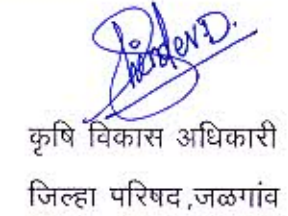 कृषि विकास अधिकारी
जिल्हा परिषद,जळगांव